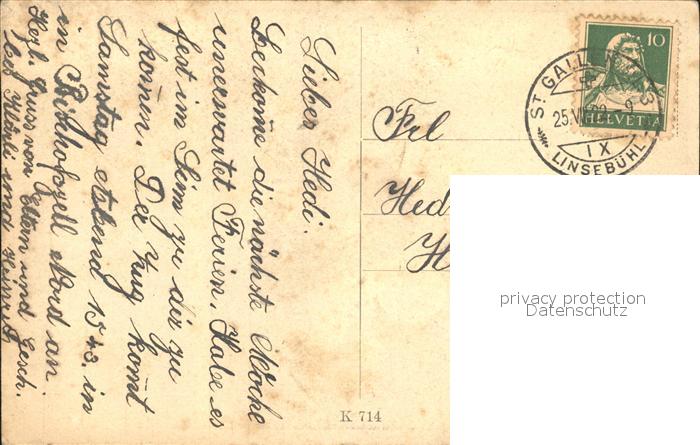 Lieber Hedi.
Berkome die nächste Woche
unerwartet Ferien. Habe es
fest im Sinn zu dir zu
komen. Der Zug komt
Samstag Abend 15 43. in
in Bischofszell Nord an.
Herzl. Gruss von Eltern und Gesch.
bes. Klärli und
Frl
Hed
H
10
HELVETIA
ST. GALL
25.V
LINSEBÜHL
IX
K 714
privacy protection
Datenschutz